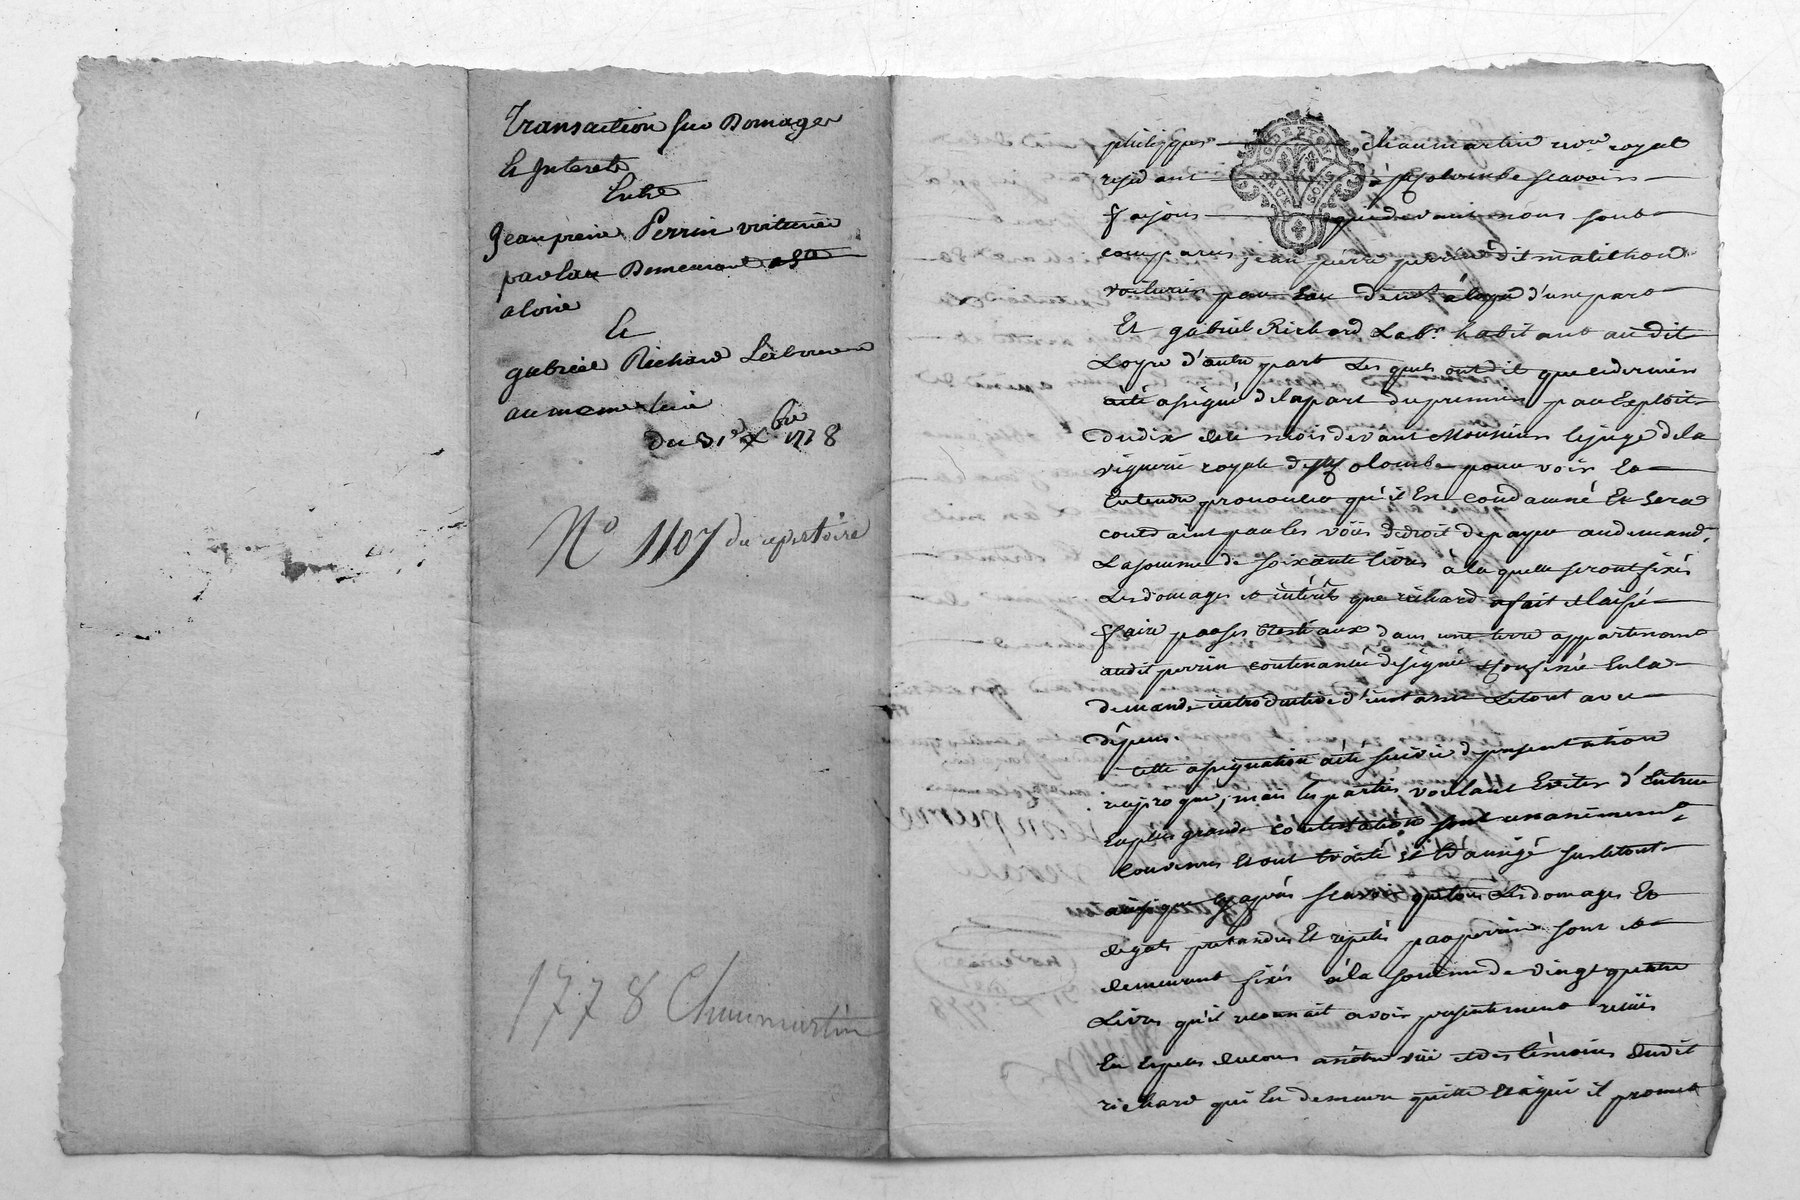 Transaction sur Domages
Et Interets
Entre
Jean piere Perrin voiturier
par Eau Demeurant
a loire
Et
gabriel Richard Laboureur
au meme lieu
du 31e Xbre 1778
No 1107 du repertoire
1778 Chaumartin
philippes Chaumartin nore royal
residant à Ste Colombe scavoir
faisons que devant nous soub
comparus jean pierre perrin dit matichon
voiturier par Eau demt à loyre d'une part
Et gabriel Richard Labr. habitant audit
Loyre d'autre part Les quels ont dit que ce dernier
a été assigné de la part du premier par Exploit
du dix de ce mois devant Monsieur le juge de la
viguerie royale de Ste Colombe pour voir
Entendre prononcer qu'il Est condamné Et sera
contraint par les voies de droit de payer au demandr
La somme de soixante livres à la quelle seront fixés
Les domages et intérêts que richard a fait et laissé
faire par ses Bestiaux dans une terre appartenant
audit perrin contenantée désignée et confinée En la
demande introductive d'instance Le tout avec
dépens.
Cette assignation a été suivie de présentation
reciproque, mais les parties voulant Eviter d'Entrer
En plus grande contestation sont unanimement
convenus et ont traité Et transigé sur le tout
ainsi que cy après scavoir que tous Les domages Et
degats pretendus Et repetés par perrin sont et
demeurent fixés à la somme de vingt quatre
Livres qu'il reconnait avoir presentement reçües
En Especes de cours a notre vüe et des témoins dudit
richard qui En demeure quitte Et a qui il promet